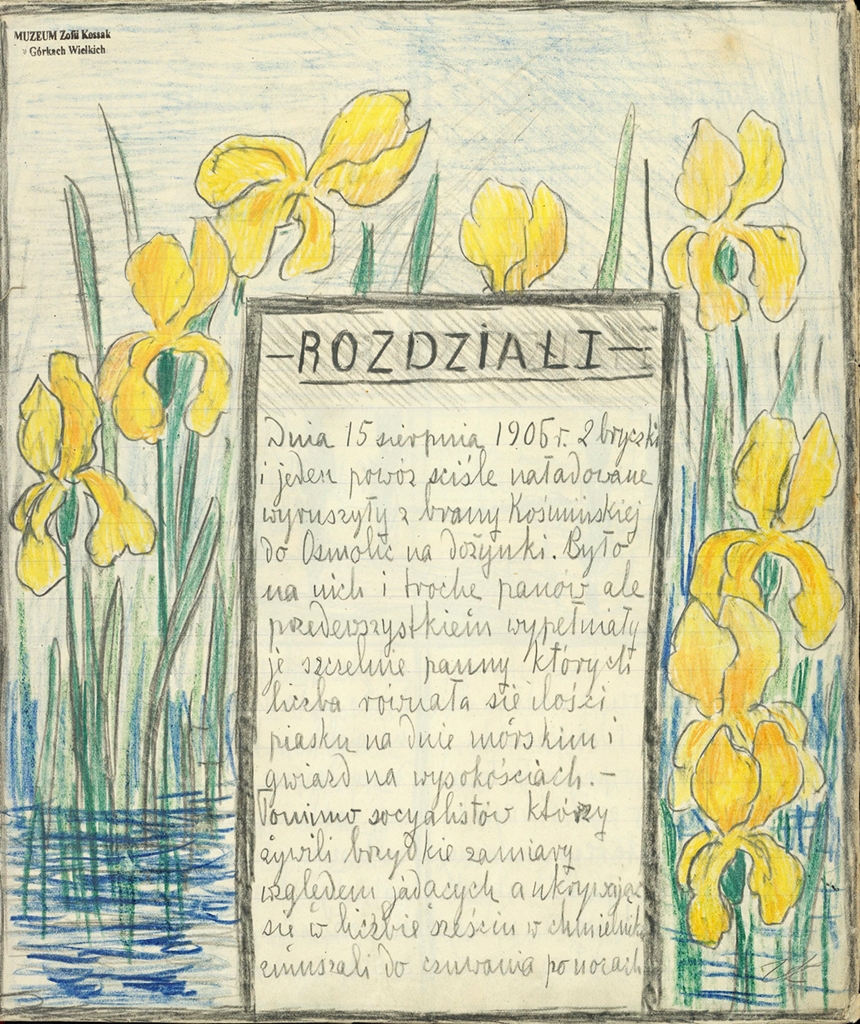 MUZEUM Zofii Kossak
w Górkach Wielkich
–ROZDZIAŁ I–
Dnia 15 sierpnia 1906 r. 2 bryczki
i jeden powóz ściśle naładowane
wyruszyły z bramy Kośmińskiej
do Osmolic na dożynki. Było
na nich i trochę panów ale
przedewszystkiem wypełniały
je szczelnie panny których
liczba równała się ilości
piasku na dnie mórskim i
gwiazd na wysokościach. –
Pomimo socyalistów którzy
żywili brzydkie zamiary
względem jadących a ukrywając
się w liczbie sześciu w chmielniku
zmuszali do czuwania po nocach